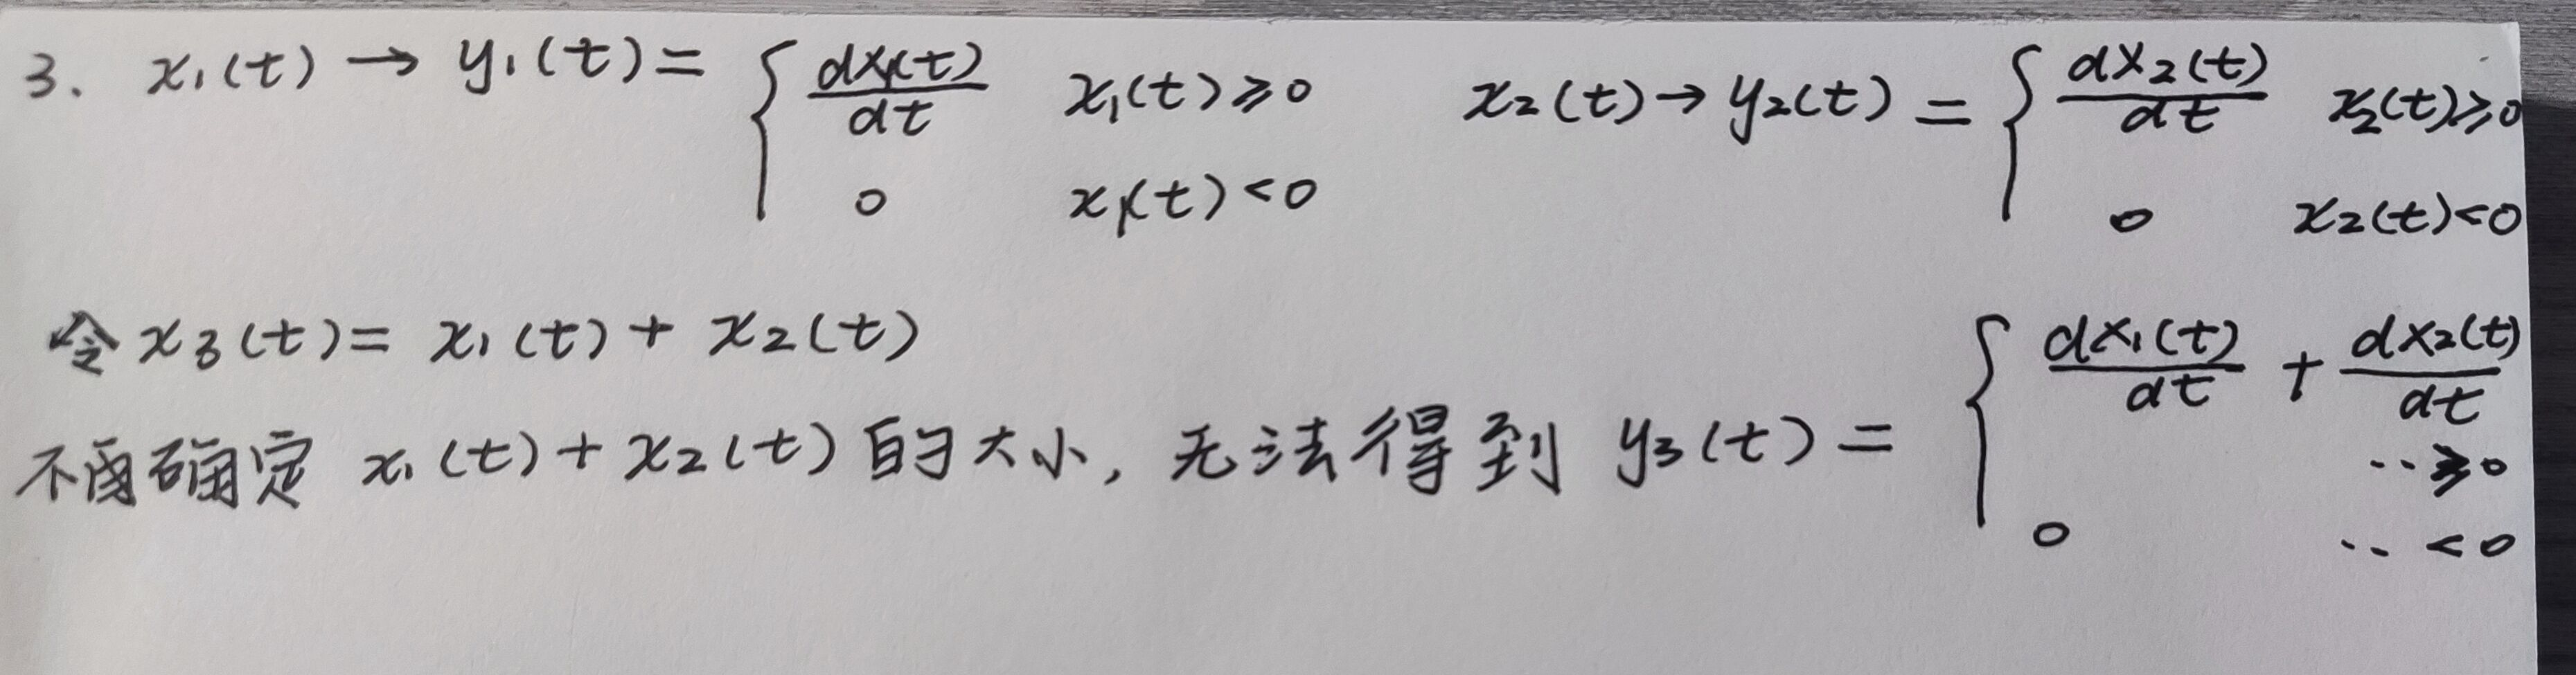 3. x₁(t) → y₁(t) = { dx₁(t)/dt x₁(t) ≥ 0 x₂(t) → y₂(t) = { dx₂(t)/dt x₂(t) ≥ 0
0 x₁(t) < 0 0 x₂(t) < 0
令 x₃(t) = x₁(t) + x₂(t)
不确定 x₁(t) + x₂(t) 的大小, 无法得到 y₃(t) = { dx₁(t)/dt + dx₂(t)/dt
·· ≥ 0
0 ·· < 0